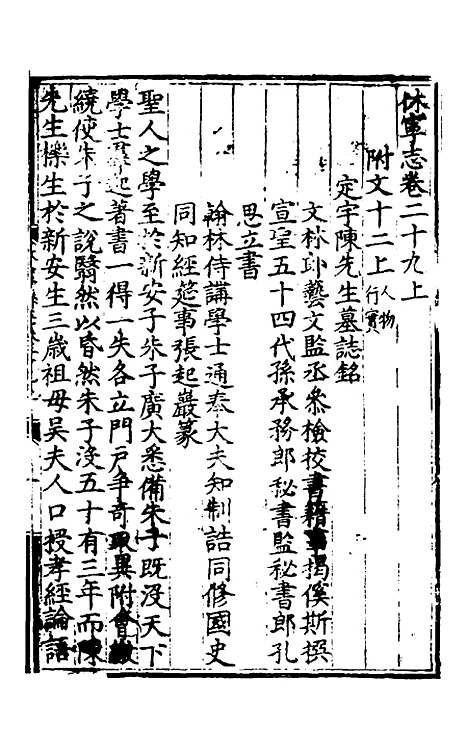 休寧志卷二十九上
附文十二上人物行實
定宇陳先生墓誌銘
文林郎藝文監丞叅檢校書籍事揭傒斯撰
宣聖五十四代孫承務郎秘書監秘書郎孔
思立書
翰林侍講學士通奉大夫知制誥同修國史
同知經筵事張起巖篆
聖人之學至於新安子朱子廣大悉備朱子既没天下
學士羣起著書一得一失各立門戸爭奇取異附會繳
繞使朱子之說翳然以昏然朱子没五十有三年而陳
先生櫟生於新安生三歳祖母吴夫人口授孝經論語